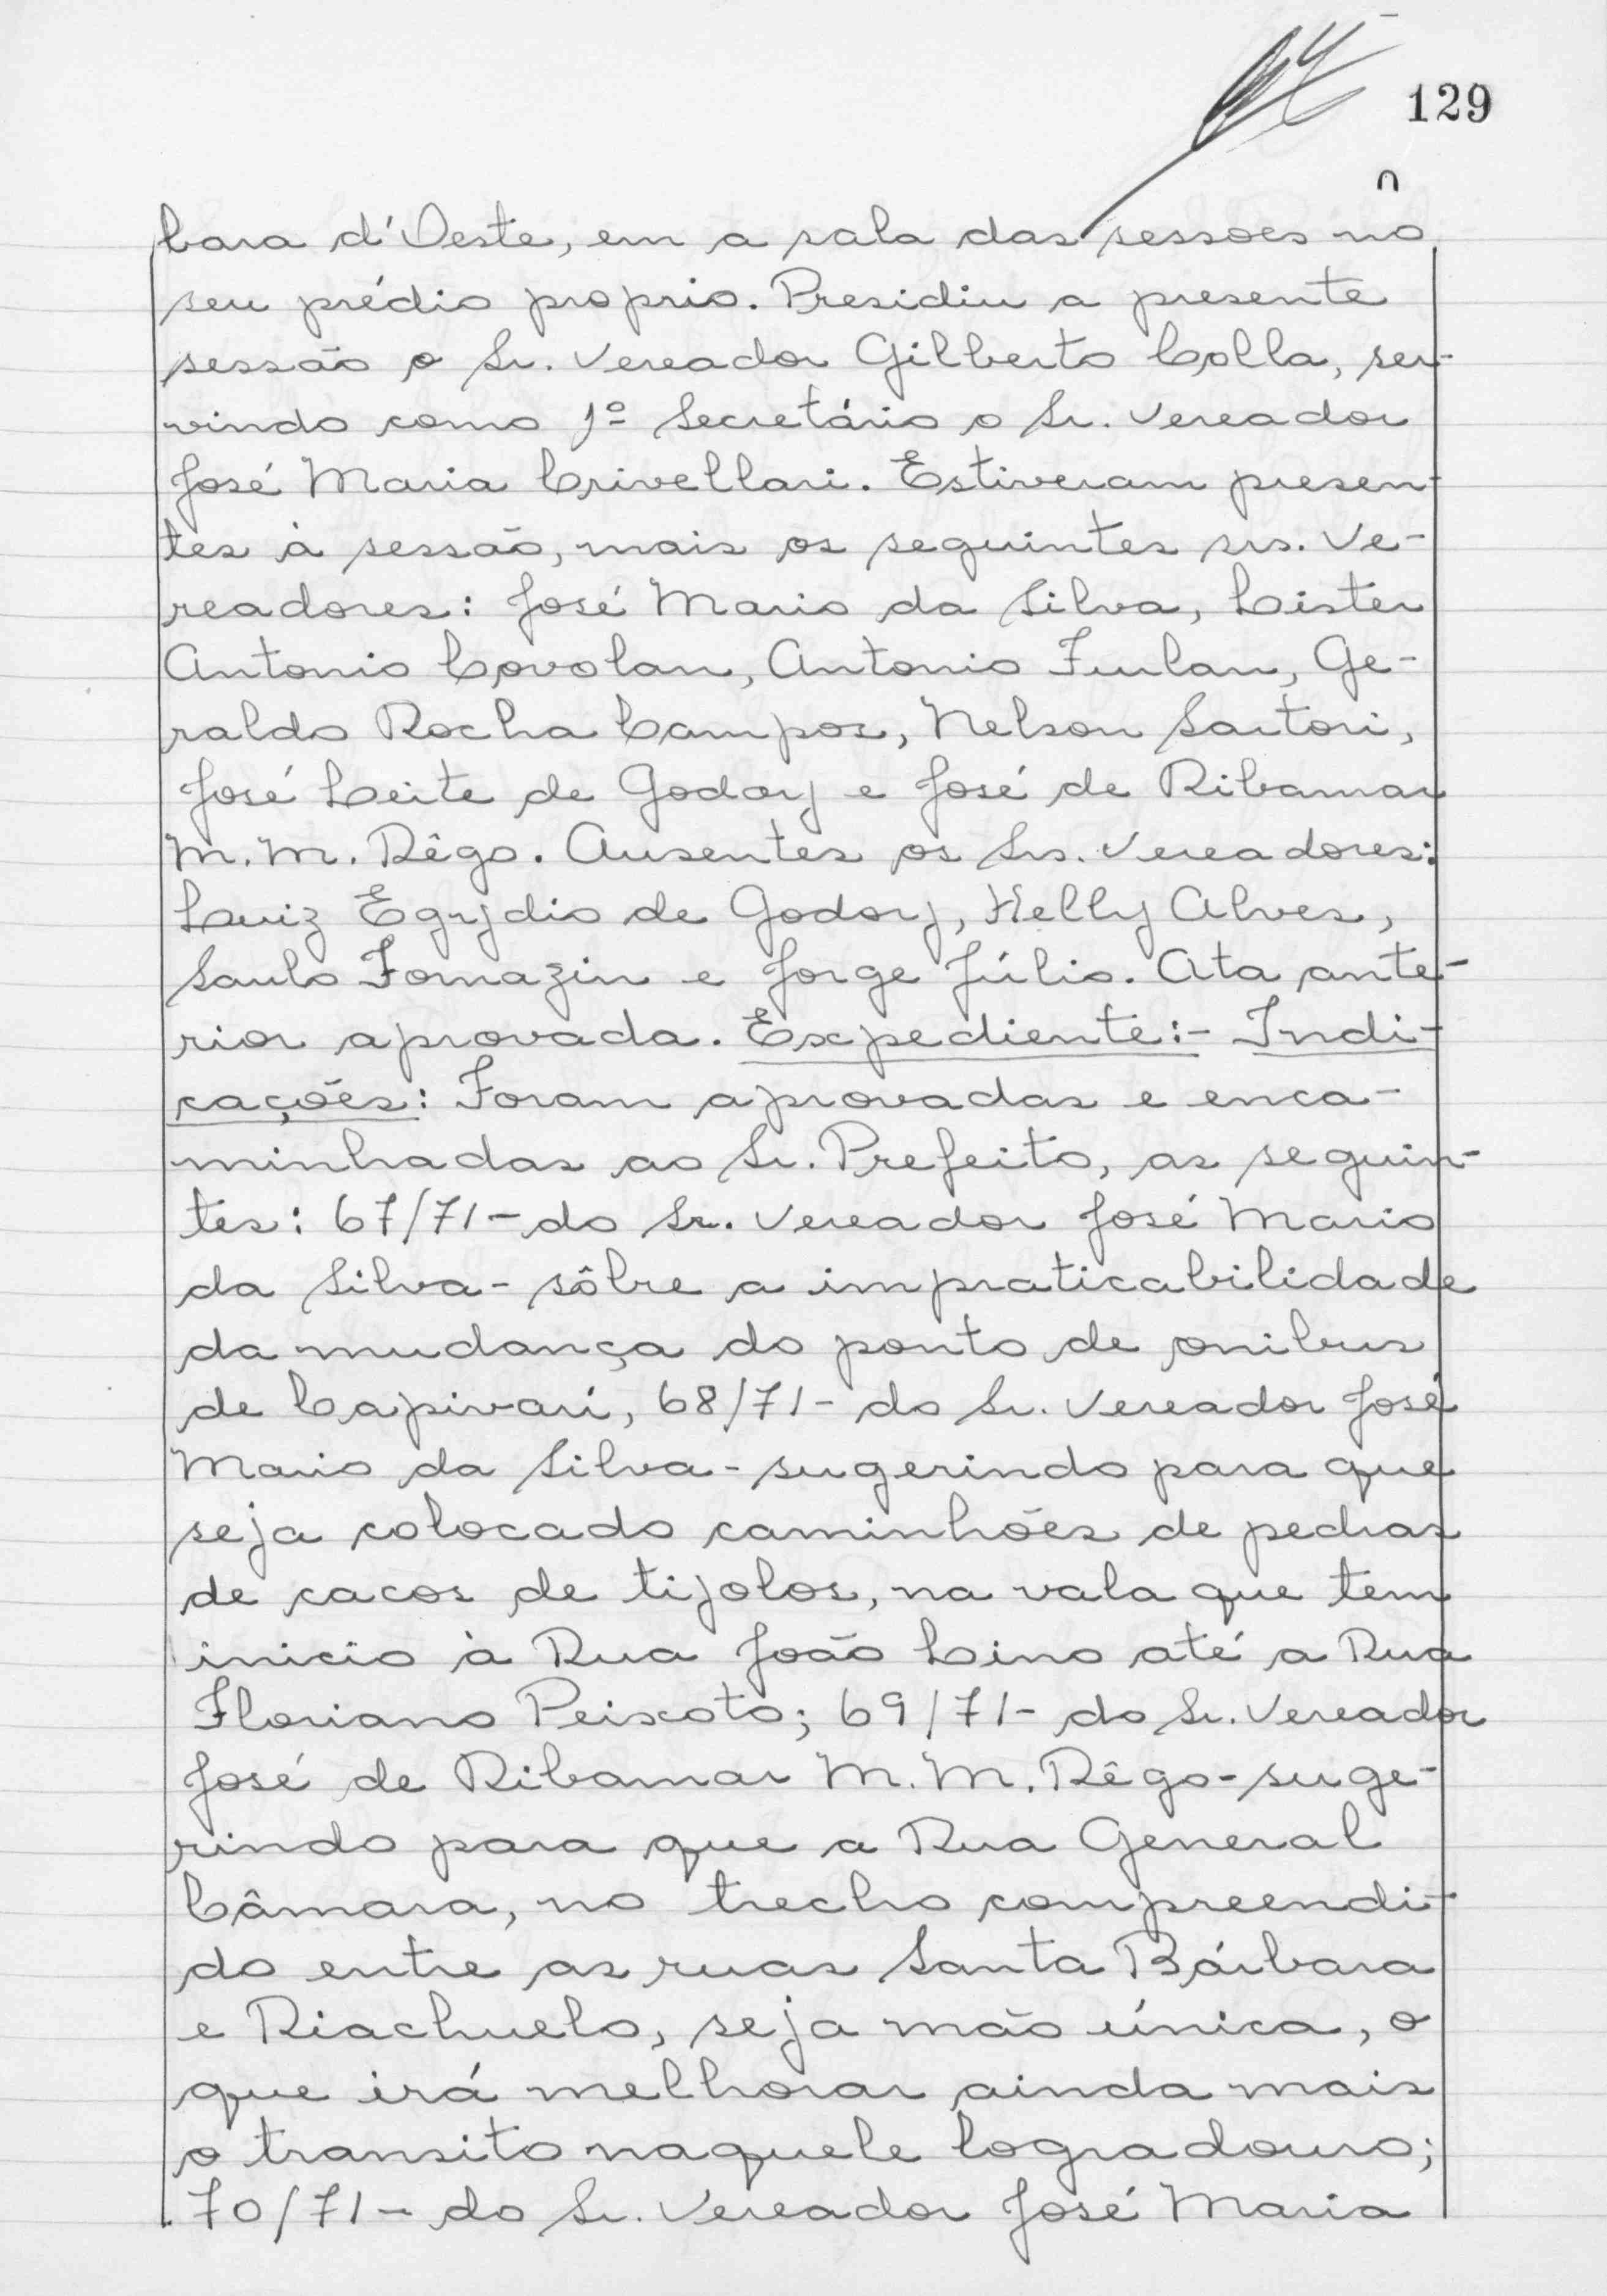 129
bara d'Oeste, em a sala das sessoes no
seu prédio proprio. Presidiu a presente
sessão o Sr. Vereador Gilberto Colla, ser-
vindo como 1º Secretário o Sr. Vereador
José Maria Crivellari. Estiveram presen-
tes à sessão, mais os seguintes srs. Ve-
readores: José Mario da Silva, Lister
Antonio Covolan, Antonio Furlan, Ge-
raldo Rocha Campos, Nelson Sartori,
José Leite de Godoy e José de Ribamar
M. M. Rêgo. Ausentes os Srs. Vereadores:
Luiz Egydio de Godoy, Kelly Alves,
Saulo Fornazin e Jorge Júlio. Ata ante-
rior aprovada. Expediente:- Indi-
cações: Foram aprovadas e enca-
minhadas ao Sr. Prefeito, as seguin-
tes: 67/71- do Sr. Vereador José Mario
da Silva- sôbre a impraticabilidade
da mudança do ponto de onibus
de Capivari, 68/71- do Sr. Vereador José
Mario da Silva- sugerindo para que
seja colocado caminhões de pedras
de cacos de tijolos, na vala que tem
inicio à Rua João Lino até a Rua
Floriano Peixoto; 69/71- do Sr. Vereador
José de Ribamar M. M. Rêgo- suge-
rindo para que a Rua General
Câmara, no trecho compreendi-
do entre as ruas Santa Bárbara
e Riachuelo, seja mão única, o
que irá melhorar ainda mais
o transito naquele logradouro;
70/71- do Sr. Vereador José Maria